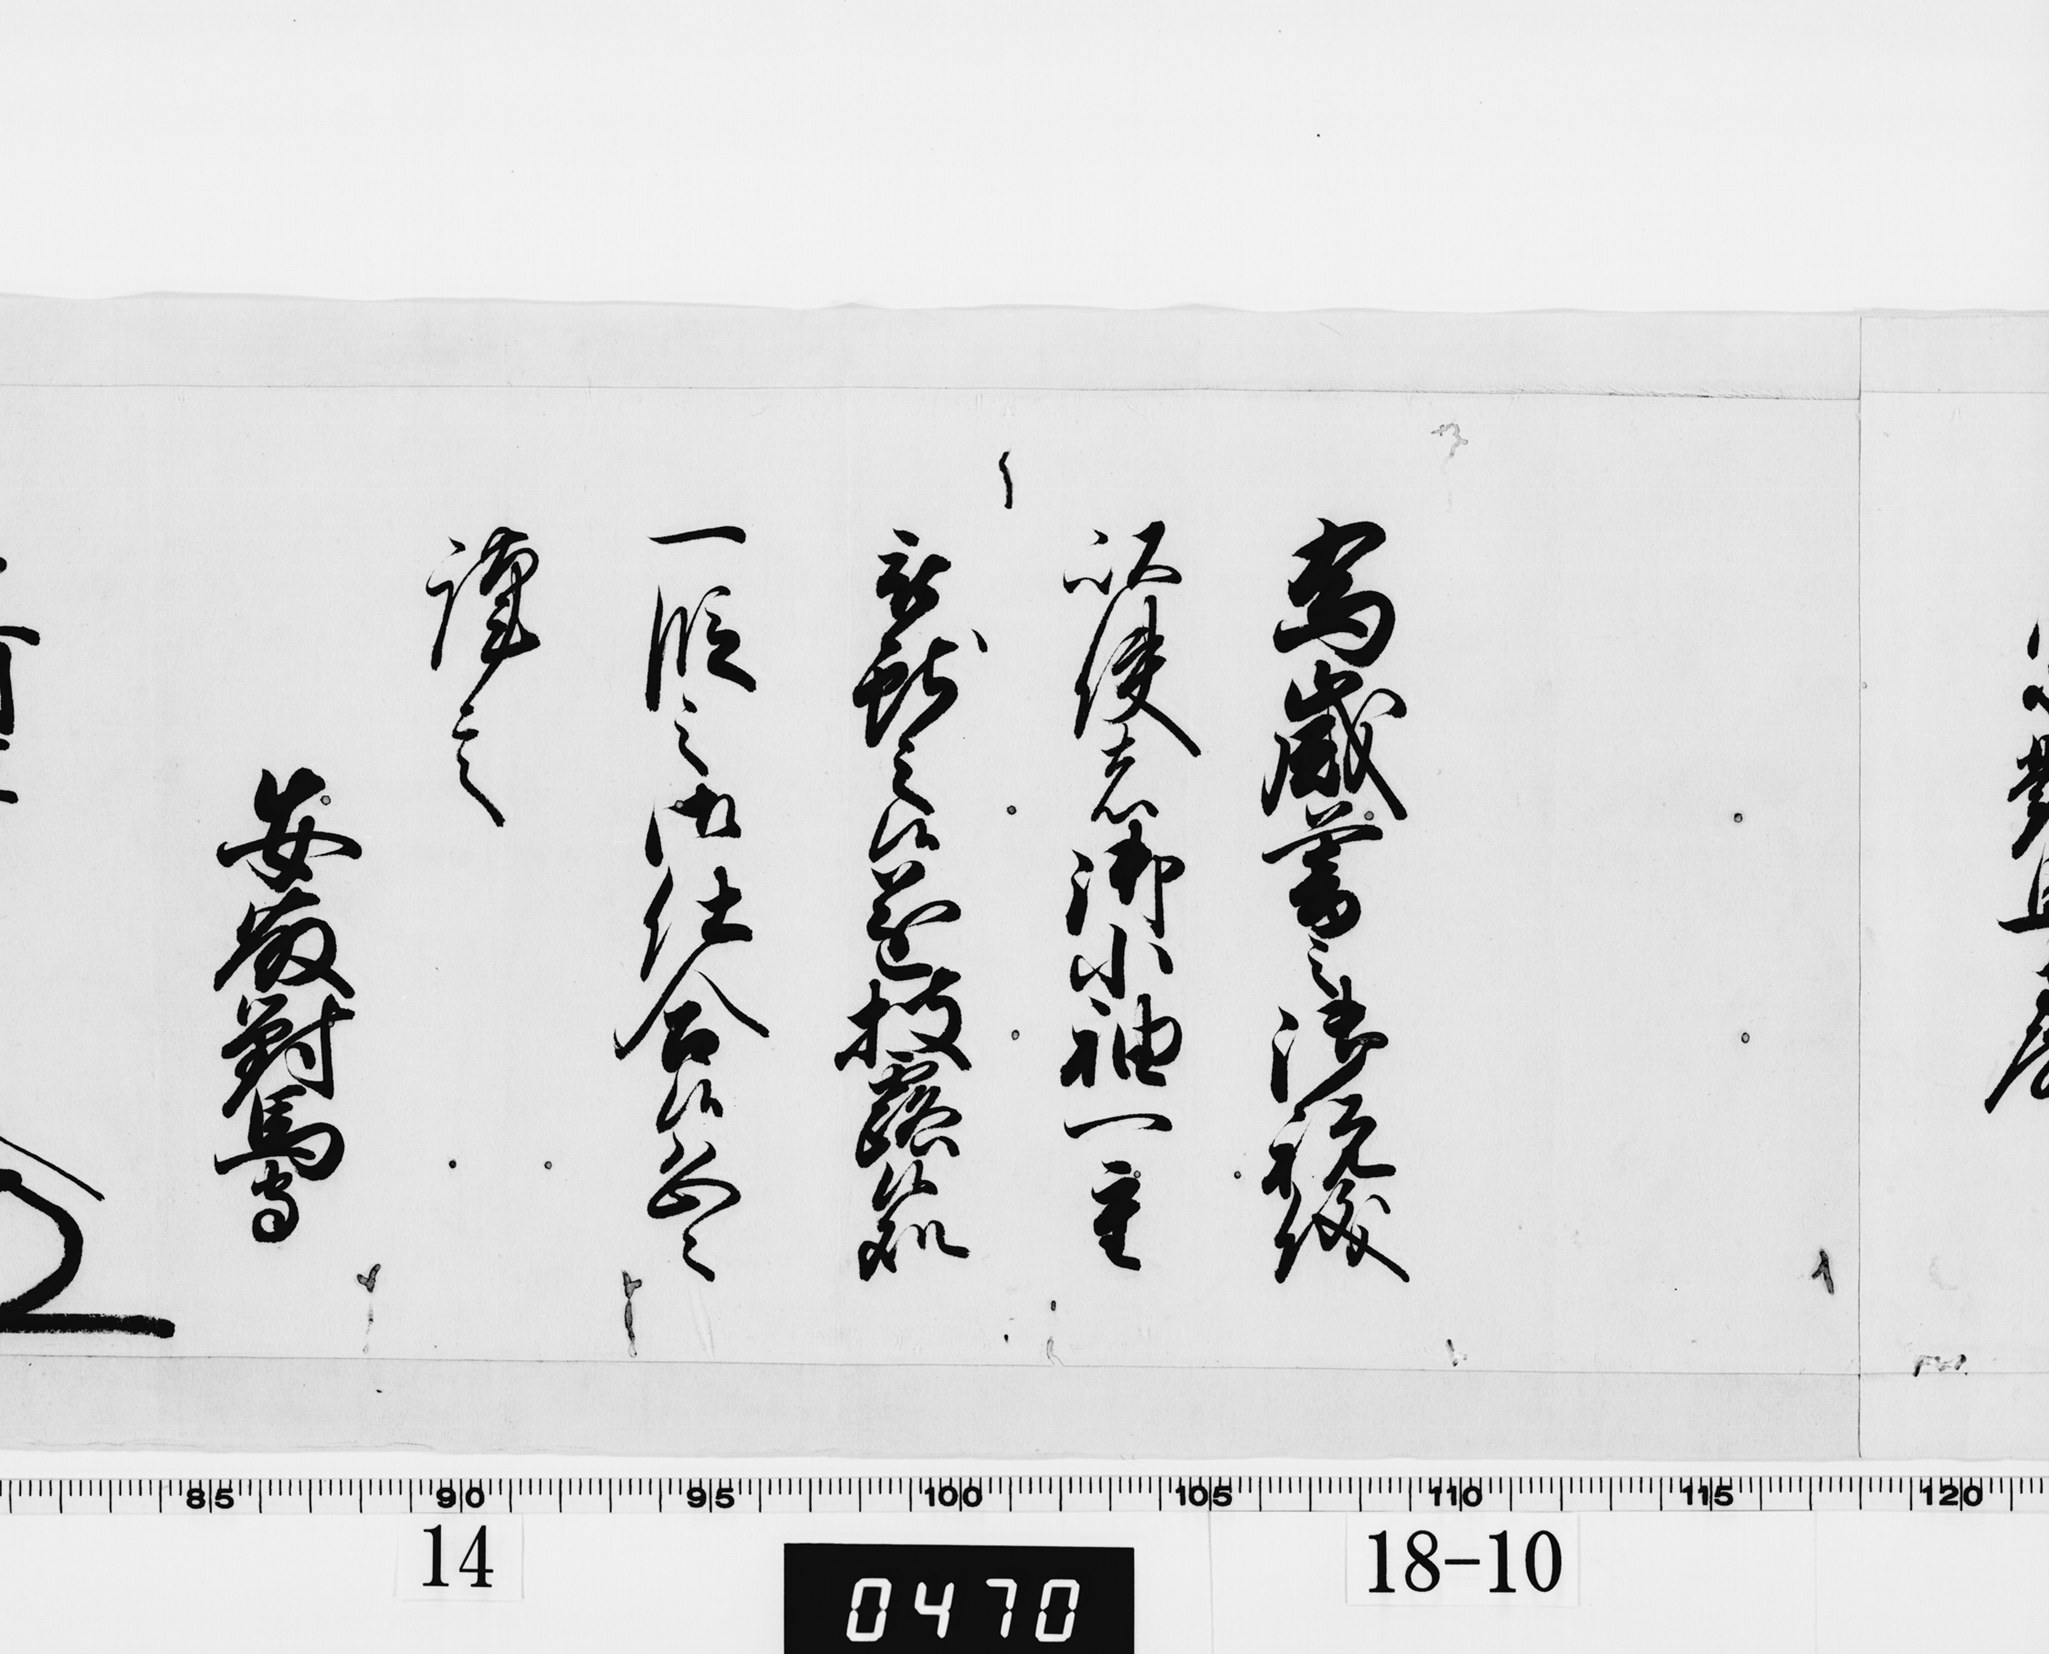 為歳暮之御祝儀
以使者御小袖一重
被献之候遂披露候処
一段之御仕合候恐々
謹言
安藤對馬守
85 90 95 100 105 110 115 120
14
18-10
0470